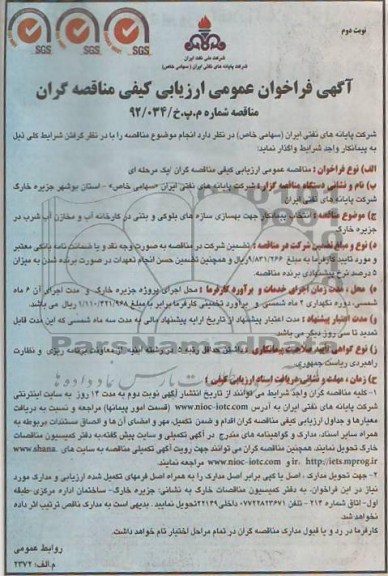 نوبت دوم
SGS SGS SGS
شرکت ملی نفت ایران
شرکت پایانه های نفتی ایران (سهامی خاص)
آگهی فراخوان عمومی ارزیابی کیفی مناقصه گران
مناقصه شماره م.پ.خ/۹۲/۰۳۴
شرکت پایانه های نفتی ایران (سهامی خاص) در نظر دارد انجام موضوع مناقصه را با در نظر گرفتن شرایط کلی ذیل
به پیمانکار واجد شرایط واگذار نماید:
الف) نوع فراخوان : مناقصه عمومی ارزیابی کیفی مناقصه گران /یک مرحله ای
ب) نام و نشانی دستگاه مناقصه گزار : شرکت پایانه های نفتی ایران «سهامی خاص» - استان بوشهر جزیره خارک
شرکت پایانه های نفتی ایران
ج) موضوع مناقصه : انتخاب پیمانکار جهت بهسازی سازه های بلوکی و بتنی در کارخانه آب و مخازن آب شرب در
جزیره خارک
د) نوع و مبلغ تضمین شرکت در مناقصه : تضمین شرکت در مناقصه به صورت وجه نقد و یا ضمانت نامه بانکی معتبر
و مورد تایید کارفرما به مبلغ ۹/۸۳۱/۲۶۶ ریال و همچنین تضمین حسن انجام تعهدات در صورت برنده شدن به میزان
۵ درصد نرخ پیشنهادی برنده مناقصه.
ه) محل ، مدت زمان اجرای خدمات و برآورد کارفرما : محل اجرای پروژه جزیره خارک و مدت اجرای آن ۶ ماه
شمسی، دوره نگهداری ۲ ماه شمسی و برآورد تخمینی کارفرما برابر به مبلغ ۱/۱۱۰/۳۲۱/۹۶۸ ریال می باشد.
و) مدت اعتبار پیشنهاد : مدت اعتبار پیشنهاد از تاریخ ارایه پیشنهاد مالی به مدت سه ماه شمسی که این مدت قابل
تمدید تا سی روز دیگر می باشد.
ز) نوع گواهی تایید صلاحیت پیمانکاری : داشتن حداقل رتبه ۵ در رشته ابنیه از معاونت برنامه ریزی و نظارت
راهبردی ریاست جمهوری
ح) زمان ، مهلت و نشانی دریافت اسناد ارزیابی کیفی :
۱- کلیه مناقصه گران واجد شرایط می توانند از تاریخ انتشار آگهی نوبت دوم به مدت ۱۴ روز به سایت اینترنتی
شرکت پایانه های نفتی ایران به آدرس www.nioc-iotc.com (قسمت امور پیمانها) مراجعه و نسبت به دریافت
معیارها و جداول ارزیابی کیفی مناقصه گران اقدام و ضمن تکمیل، مهر و امضای آن ها و الصاق مستندات مربوطه به
همراه سایر اسناد، مدارک و گواهینامه های مندرج در آگهی تکمیلی و سایت پیش گفته، به دفتر کمیسیون مناقصات
خارک تحویل نمایند. همچنین مناقصه گران می توانند جهت رویت آگهی تکمیلی مناقصه به سایت های www.shana.
ir، http://iets.mporg.ir و www.nioc-iotc.com مراجعه نمایند.
۲- جهت تحویل مدارک ، اصل یا کپی برابر اصل مدارک را به همراه اصل فرمهای تکمیل شده ارزیابی و مدارک مورد
نیاز در این فراخوان، به دفتر کمیسیون مناقصات خارک به نشانی: جزیره خارک- ساختمان اداره مرکزی-طبقه
اول-اتاق شماره ۲۱۳ - تلفن داخلی تحویل نمایید . بدیهی است به مدارک ناقص ترتیب اثر داده
نخواهد شد.
کارفرما در رد و یا قبول مدارک مناقصه گران در تمام مراحل اختیار تام خواهد داشت.
روابط عمومی
م.الف: ۲۳۷۲
ParsNamadData
پایگاه اطلاع رسانی پارس نماد داده ها